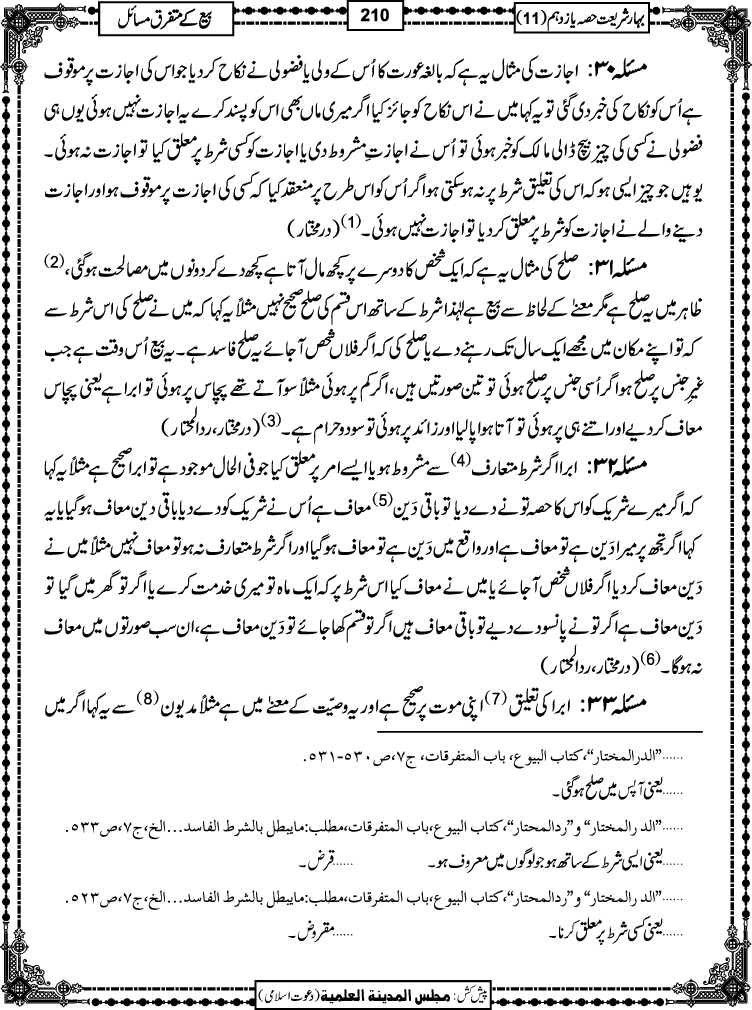 بہار شریعت حصہ یازدہم (11)
210
بیع کے متفرق مسائل
مسئلہ ۳۰: اجازت کی مثال یہ ہے کہ بالغہ عورت کا اُس کے ولی یا فضولی نے نکاح کر دیا جو اس کی اجازت پر موقوف
ہے اُس کو نکاح کی خبر دی گئی تو یہ کہا میں نے اس نکاح کو جائز کیا اگر میری ماں بھی اس کو پسند کرے یہ اجازت نہیں ہوئی یوں ہی
فضولی نے کسی کی چیز بیچ ڈالی مالک کو خبر ہوئی تو اُس نے اجازتِ مشروط دی یا اجازت کو کسی شرط پر معلق کیا تو اجازت نہ ہوئی۔
یوہیں جو چیز ایسی ہو کہ اس کی تعلیق شرط پر نہ ہو سکتی ہو اگر اُس کو اس طرح پر منعقد کیا کہ کسی کی اجازت پر موقوف ہو اور اجازت
دینے والے نے اجازت کو شرط پر معلق کر دیا تو اجازت نہیں ہوئی۔(1) (درمختار)
مسئلہ ۳۱: صلح کی مثال یہ ہے کہ ایک شخص کا دوسرے پر کچھ مال آتا ہے کچھ دے کر دونوں میں مصالحت ہو گئی،(2)
ظاہر میں یہ صلح ہے مگر معنےٰ کے لحاظ سے بیع ہے لہٰذا شرط کے ساتھ اس قسم کی صلح صحیح نہیں مثلاً یہ کہا کہ میں نے صلح کی اس شرط سے
کہ تو اپنے مکان میں مجھے ایک سال تک رہنے دے یا صلح کی کہ اگر فلاں شخص آجائے یہ صلح فاسد ہے۔ یہ بیع اُس وقت ہے جب
غیر جنس پر صلح ہو اگر اُسی جنس پر صلح ہوئی تو تین صورتیں ہیں، اگر کم پر ہوئی مثلاً سو آتے تھے پچاس پر ہوئی تو ابرا ہے یعنی پچاس
معاف کر دیے اور اتنے ہی پر ہوئی تو آتا ہوا پالیا اور زائد پر ہوئی تو سود و حرام ہے۔(3) (درمختار، ردالمحتار)
مسئلہ ۳۲: ابرا اگر شرط متعارف(4) سے مشروط ہو یا ایسے امر پر معلق کیا جو فی الحال موجود ہے تو ابرا صحیح ہے مثلاً یہ کہا
کہ اگر میرے شریک کو اس کا حصہ تو نے دے دیا تو باقی دَین(5) معاف ہے اُس نے شریک کو دے دیا باقی دین معاف ہو گیا یا یہ
کہا اگر تجھ پر میرا دَین ہے تو معاف ہے اور واقع میں دَین ہے تو معاف ہو گیا اور اگر شرط متعارف نہ ہو تو معاف نہیں مثلاً میں نے
دَین معاف کر دیا اگر فلاں شخص آجائے یا میں نے معاف کیا اس شرط پر کہ ایک ماہ تو میری خدمت کرے یا اگر تو گھر میں گیا تو
دَین معاف ہے اگر تو نے پانسو دے دیے تو باقی معاف ہیں اگر تو قسم کھا جائے تو دَین معاف ہے، ان سب صورتوں میں معاف
نہ ہوگا۔(6) (درمختار، ردالمحتار)
مسئلہ ۳۳: ابرا کی تعلیق(7) اپنی موت پر صحیح ہے اور یہ وصیّت کے معنےٰ میں ہے مثلاً مدیون(8) سے یہ کہا اگر میں
......"الدرالمختار"، كتاب البيوع، باب المتفرقات، ج٧، ص٥٣٠-٥٣١.
......یعنی آپس میں صلح ہو گئی۔
......"الدرالمختار" و"ردالمحتار"، كتاب البيوع، باب المتفرقات، مطلب: مايبطل بالشرط الفاسد...الخ، ج٧، ص٥٣٣.
......یعنی ایسی شرط کے ساتھ ہو جو لوگوں میں معروف ہو۔ ......قرض۔
......"الدرالمختار" و"ردالمحتار"، كتاب البيوع، باب المتفرقات، مطلب: مايبطل بالشرط الفاسد...الخ، ج٧، ص٥٢٣.
......یعنی کسی شرط پر معلق کرنا۔ ......مقروض۔
پیش کش: مجلس المدینة العلمیة (دعوت اسلامی)